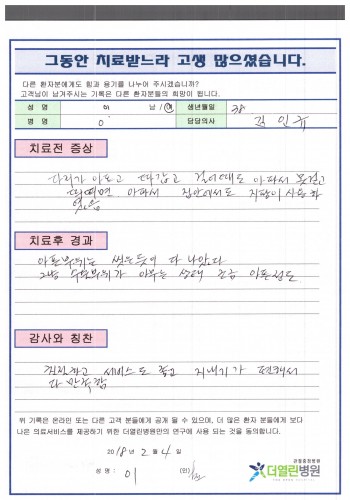 그동안 치료받느라 고생 많으셨습니다.
다른 환자분에게도 힘과 용기를 나누어 주시겠습니까?
고객님이 남겨주시는 기록은 다른 환자분들의 희망이 됩니다.
성 명 이 남 / 여 생년월일 38
병 명 0 담당의사 김인규
치료전 증상
다리가 아프고 따갑고 걸어때도 아파서 못걷고
아파서 집안에서도 지팡이 사용하
였음
치료후 경과
아픈부위는 씻은듯이 다 나았다
수술부위가 아무는 상태 조금 아픈정도
감사와 칭찬
친절하고 서비스도 좋고 지내기가 편해서
다 만족함
위 기록은 온라인 또는 다른 고객 분들에게 공개 될 수 있으며, 더 많은 환자 분들에게 보다
나은 의료서비스를 제공하기 위한 더열린병원만의 연구에 사용 되는 것을 동의합니다.
2018년 2월 4일
성 명 : 이 (인)
관절중점병원
더열린병원